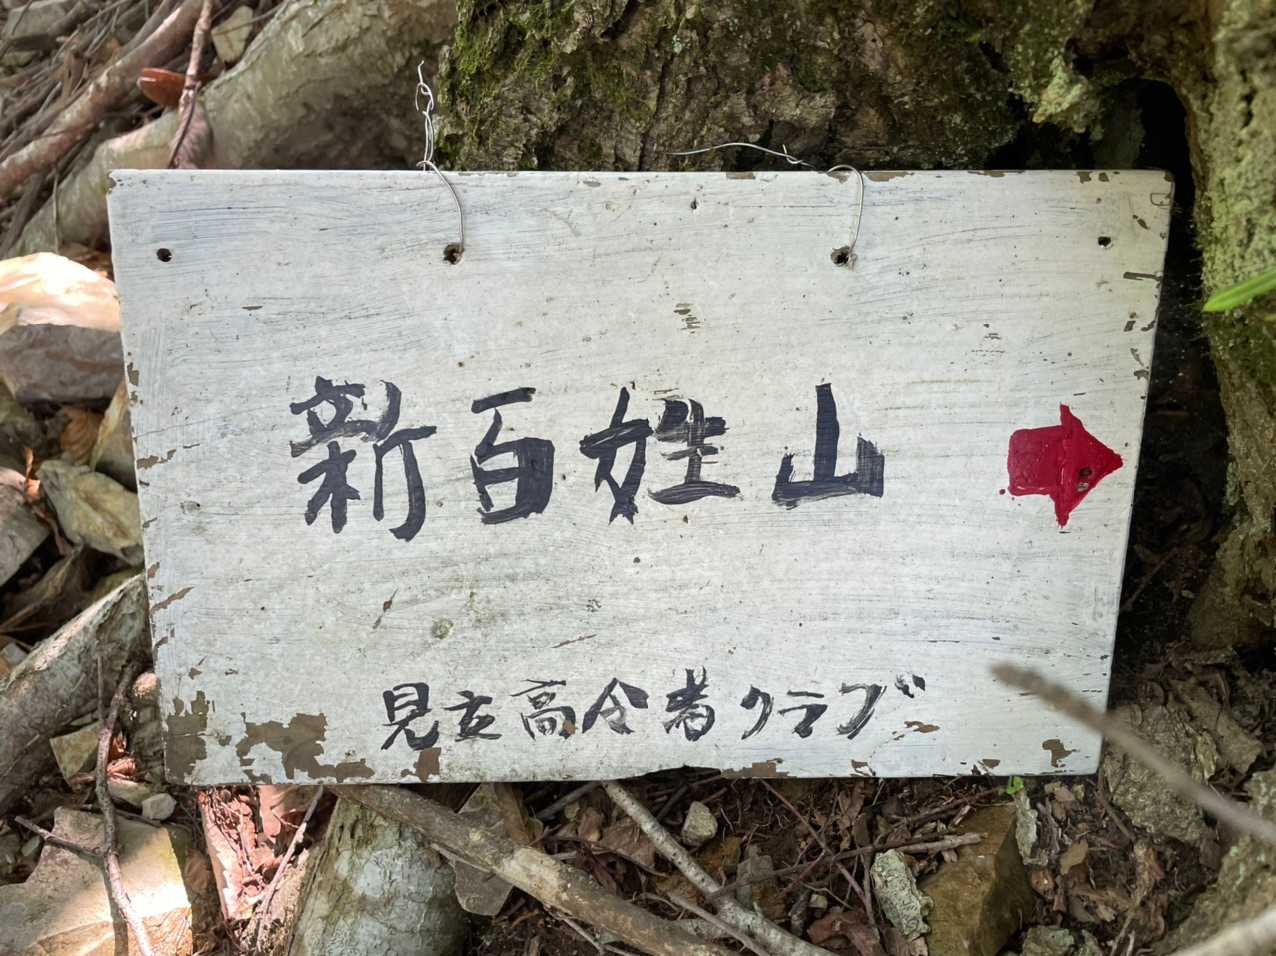 新百姓山
見立高令者クラブ